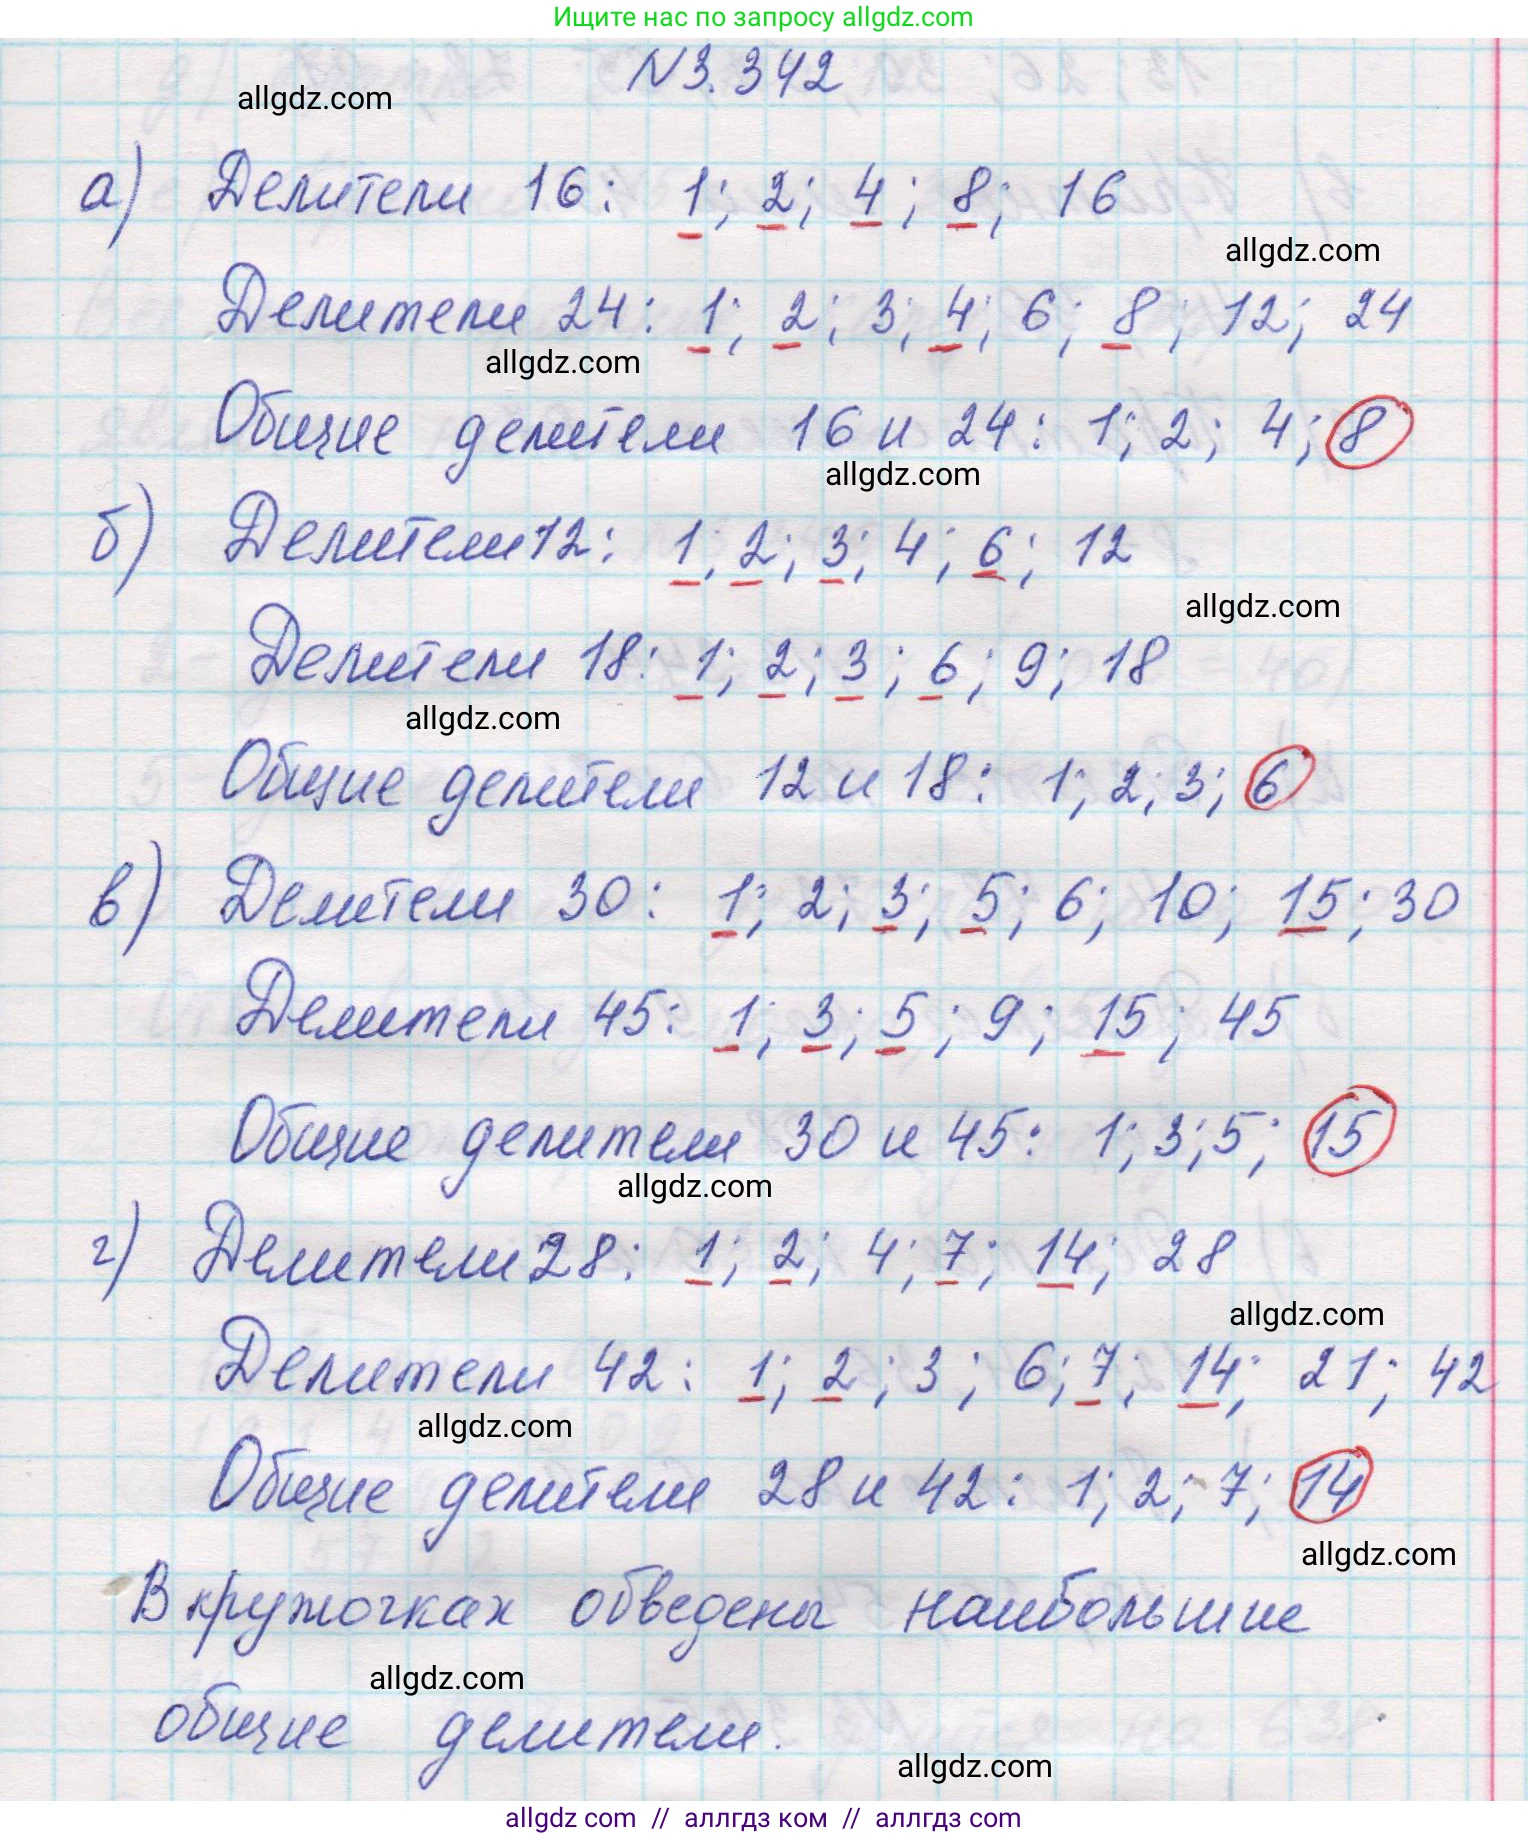 Ищите нас по запросу allgdz.com
N3.342
allgdz.com
а) Делители 16: 1; 2; 4; 8; 16
allgdz.com
Делители 24: 1; 2; 3; 4; 6; 8; 12; 24
allgdz.com
Общие делители 16 и 24: 1; 2; 4; 8
allgdz.com
б) Делители 12: 1; 2; 3; 4; 6; 12
allgdz.com
Делители 18: 1; 2; 3; 6; 9; 18
allgdz.com
Общие делители 12 и 18: 1; 2; 3; 6
в) Делители 30: 1; 2; 3; 5; 6; 10; 15; 30
Делители 45: 1; 3; 5; 9; 15; 45
Общие делители 30 и 45: 1; 3; 5; 15
allgdz.com
г) Делители 28: 1; 2; 4; 7; 14; 28
allgdz.com
Делители 42: 1; 2; 3; 6; 7; 14; 21; 42
allgdz.com
Общие делители 28 и 42: 1; 2; 7; 14
allgdz.com
В кружочках обведены наибольшие
allgdz.com
общие делители.
allgdz.com
allgdz com // аллгдз ком // аллгдз com